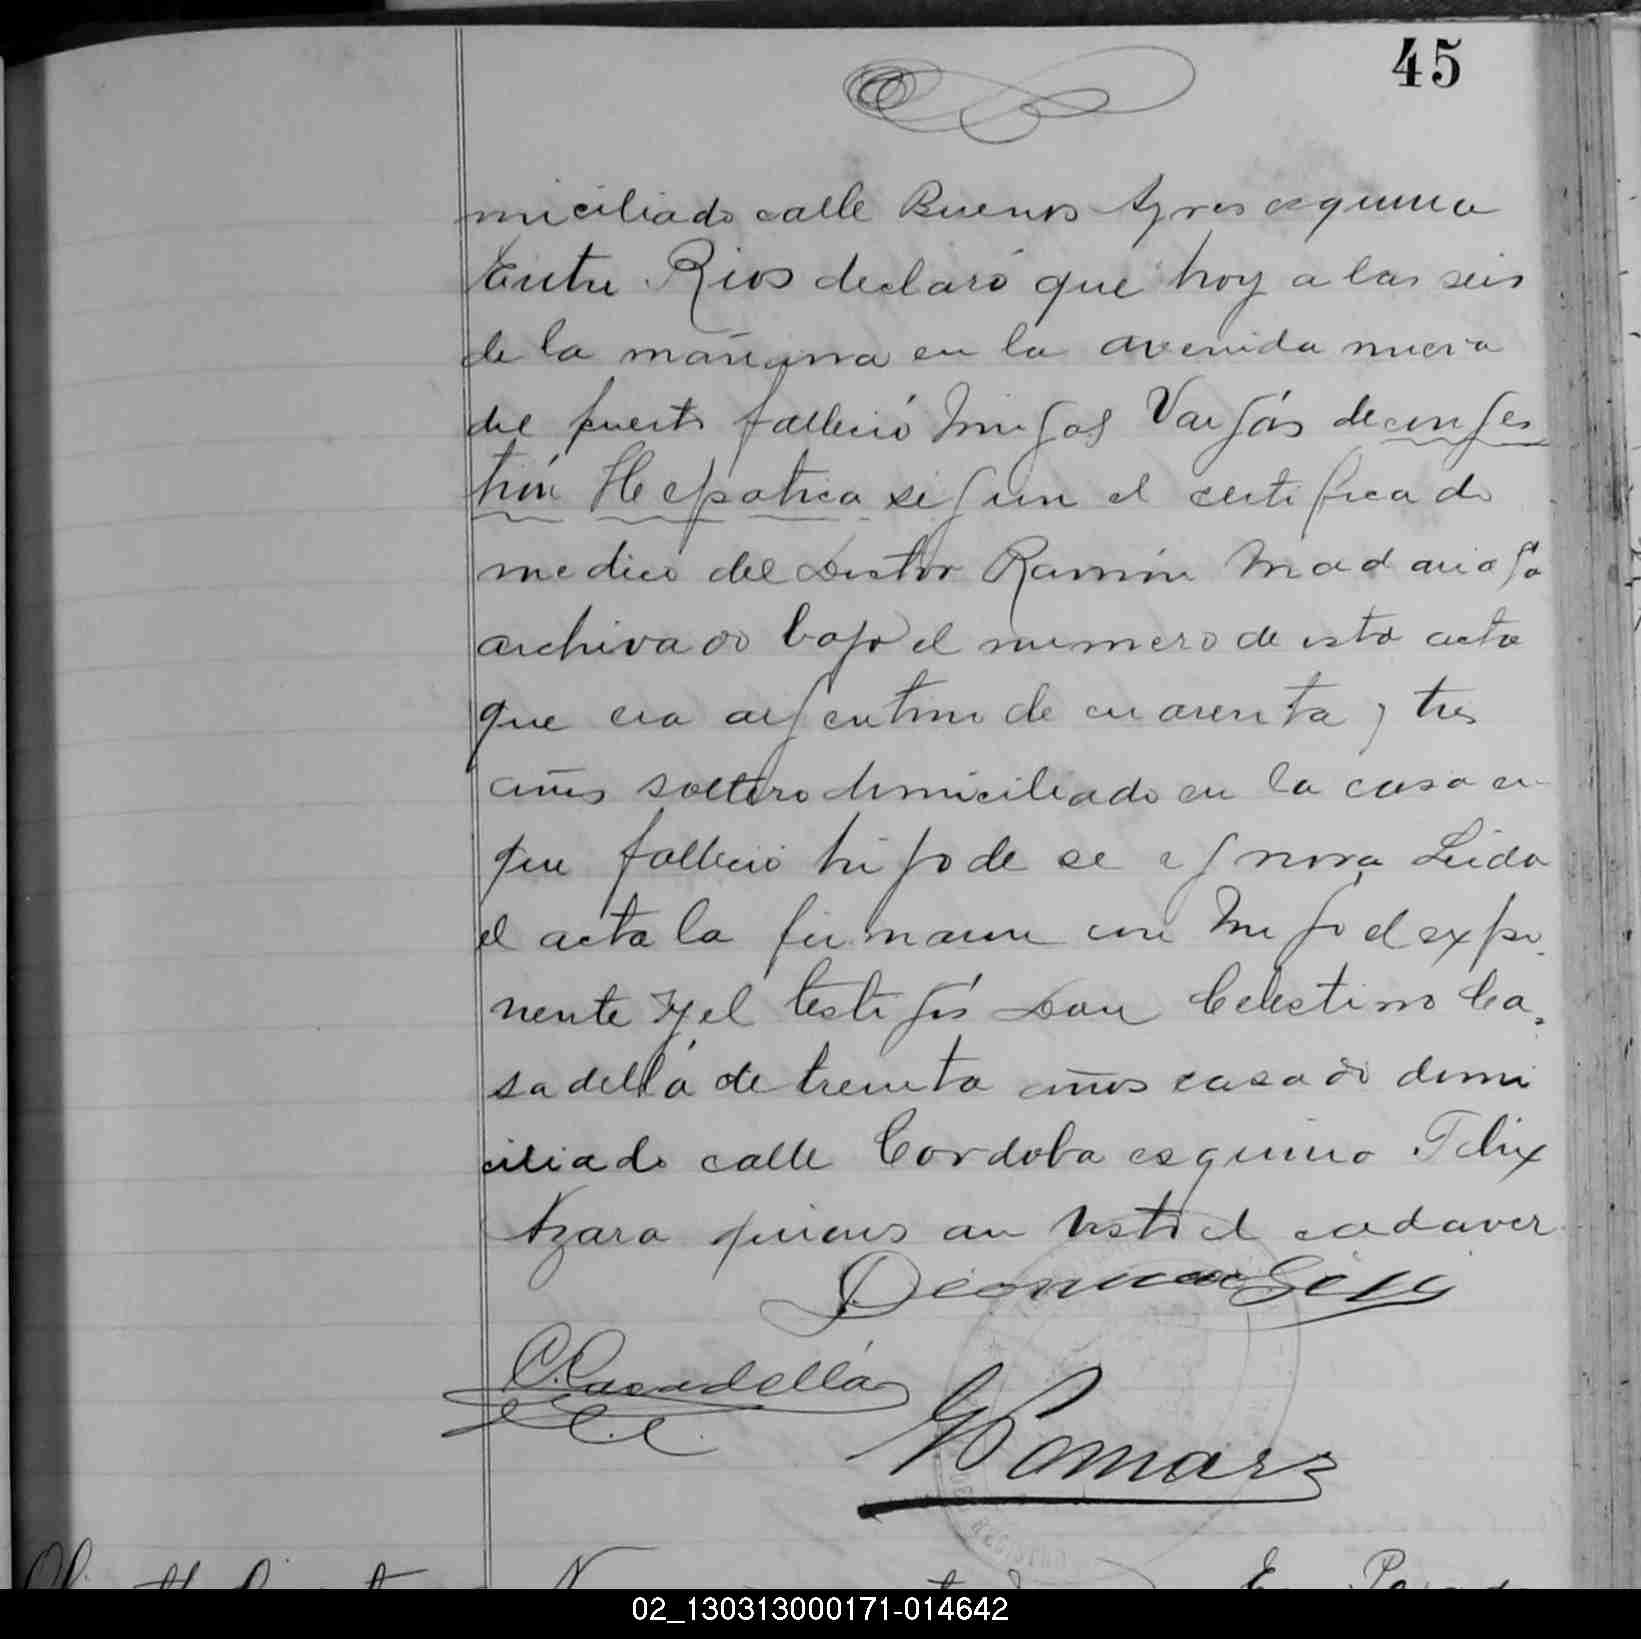 45
miciliado calle Buenos Ayres esquina
Entre Rios declaró que hoy a las seis
de la mañana en la avenida nueva
del puerto falleció Vargás de conges
tión Hepatica segun el certificado
medico del Doctor Ramón Madariaga
archivado bajo el numero de esta acta
que era argentino de cuarenta y tres
años soltero domiciliado en la casa en
que falleció hijo de se ignora Leida
el acta la firmaron con migo el expo
nente y el testigos Don Celestino Ca
sadellá de treinta años casado domi
ciliado calle Cordoba esquina Felix
Azara quienes an visto el cadaver
C. Casadellá
Pomar
02_130313000171-014642